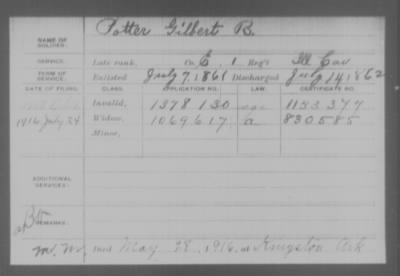 Potter Gilbert B.
NAME OF SOLDIER:
SERVICE: Late rank, Co. E, 1 Reg't Ill Cav
TERM OF SERVICE: Enlisted July 7, 1861 Discharged July 14, 1862
DATE OF FILING. CLASS. APPLICATION NO. LAW. CERTIFICATE NO.
Invalid, 1378130 1153377
1916 July 24 Widow, 1069617 a 830585
Minor,
ADDITIONAL SERVICES:
REMARKS:
died May 28, 1916, at Kingston Ark